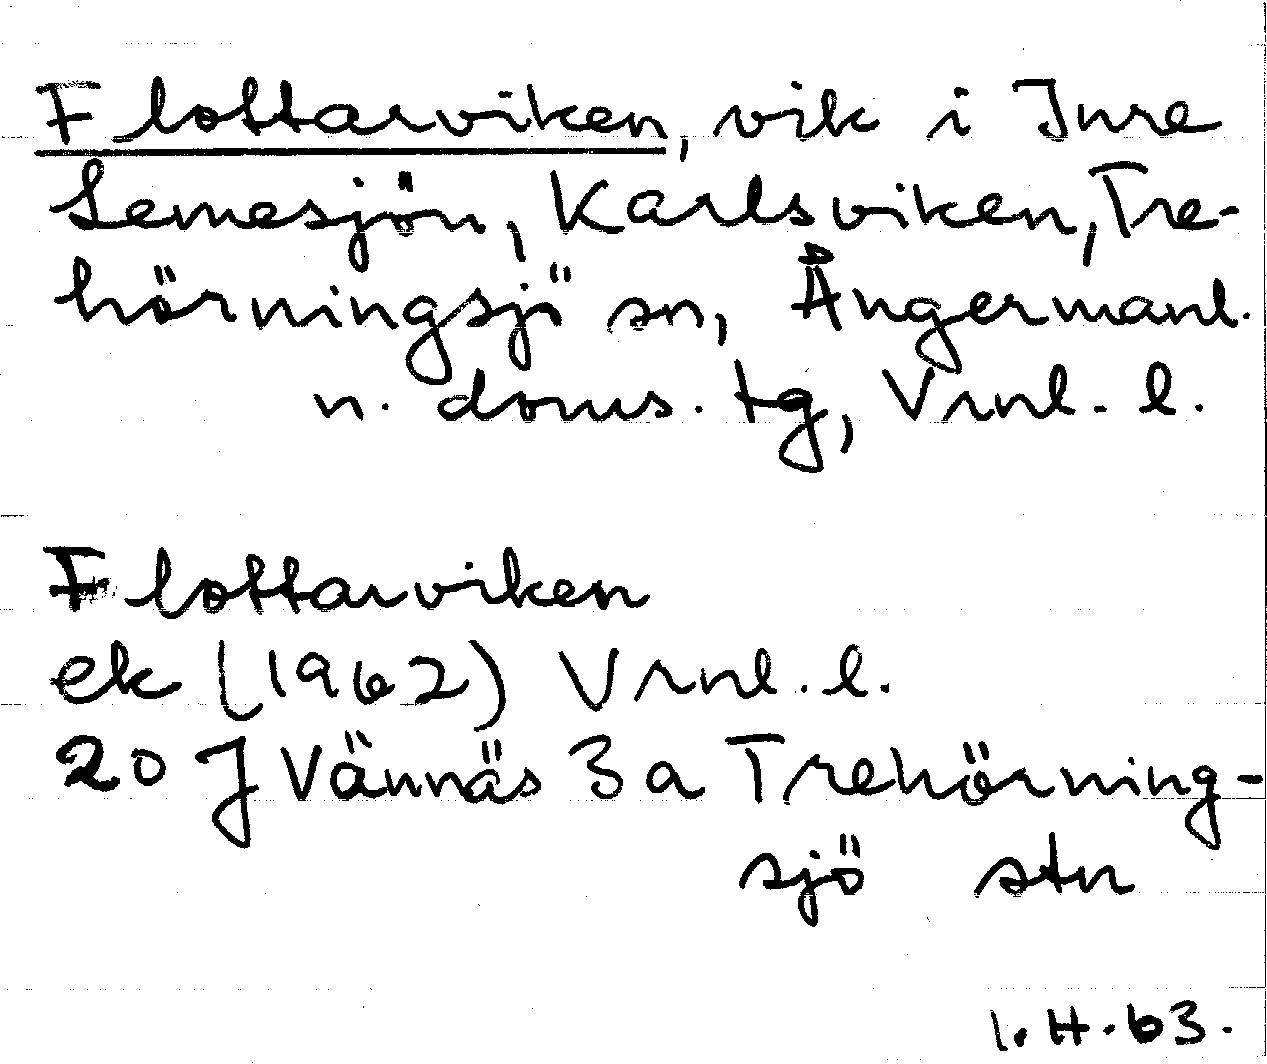 Flottarviken, vik i Inre
Lemesjön, Karlsviken, Tre-
hörningsjö sn, Ångermanl.
n. doms. tg, Vrnl. l.
Flottarviken
ek (1962) Vrnl. l.
20 J Vännäs 3 a Trehörning-
sjö stn
I.H.63.